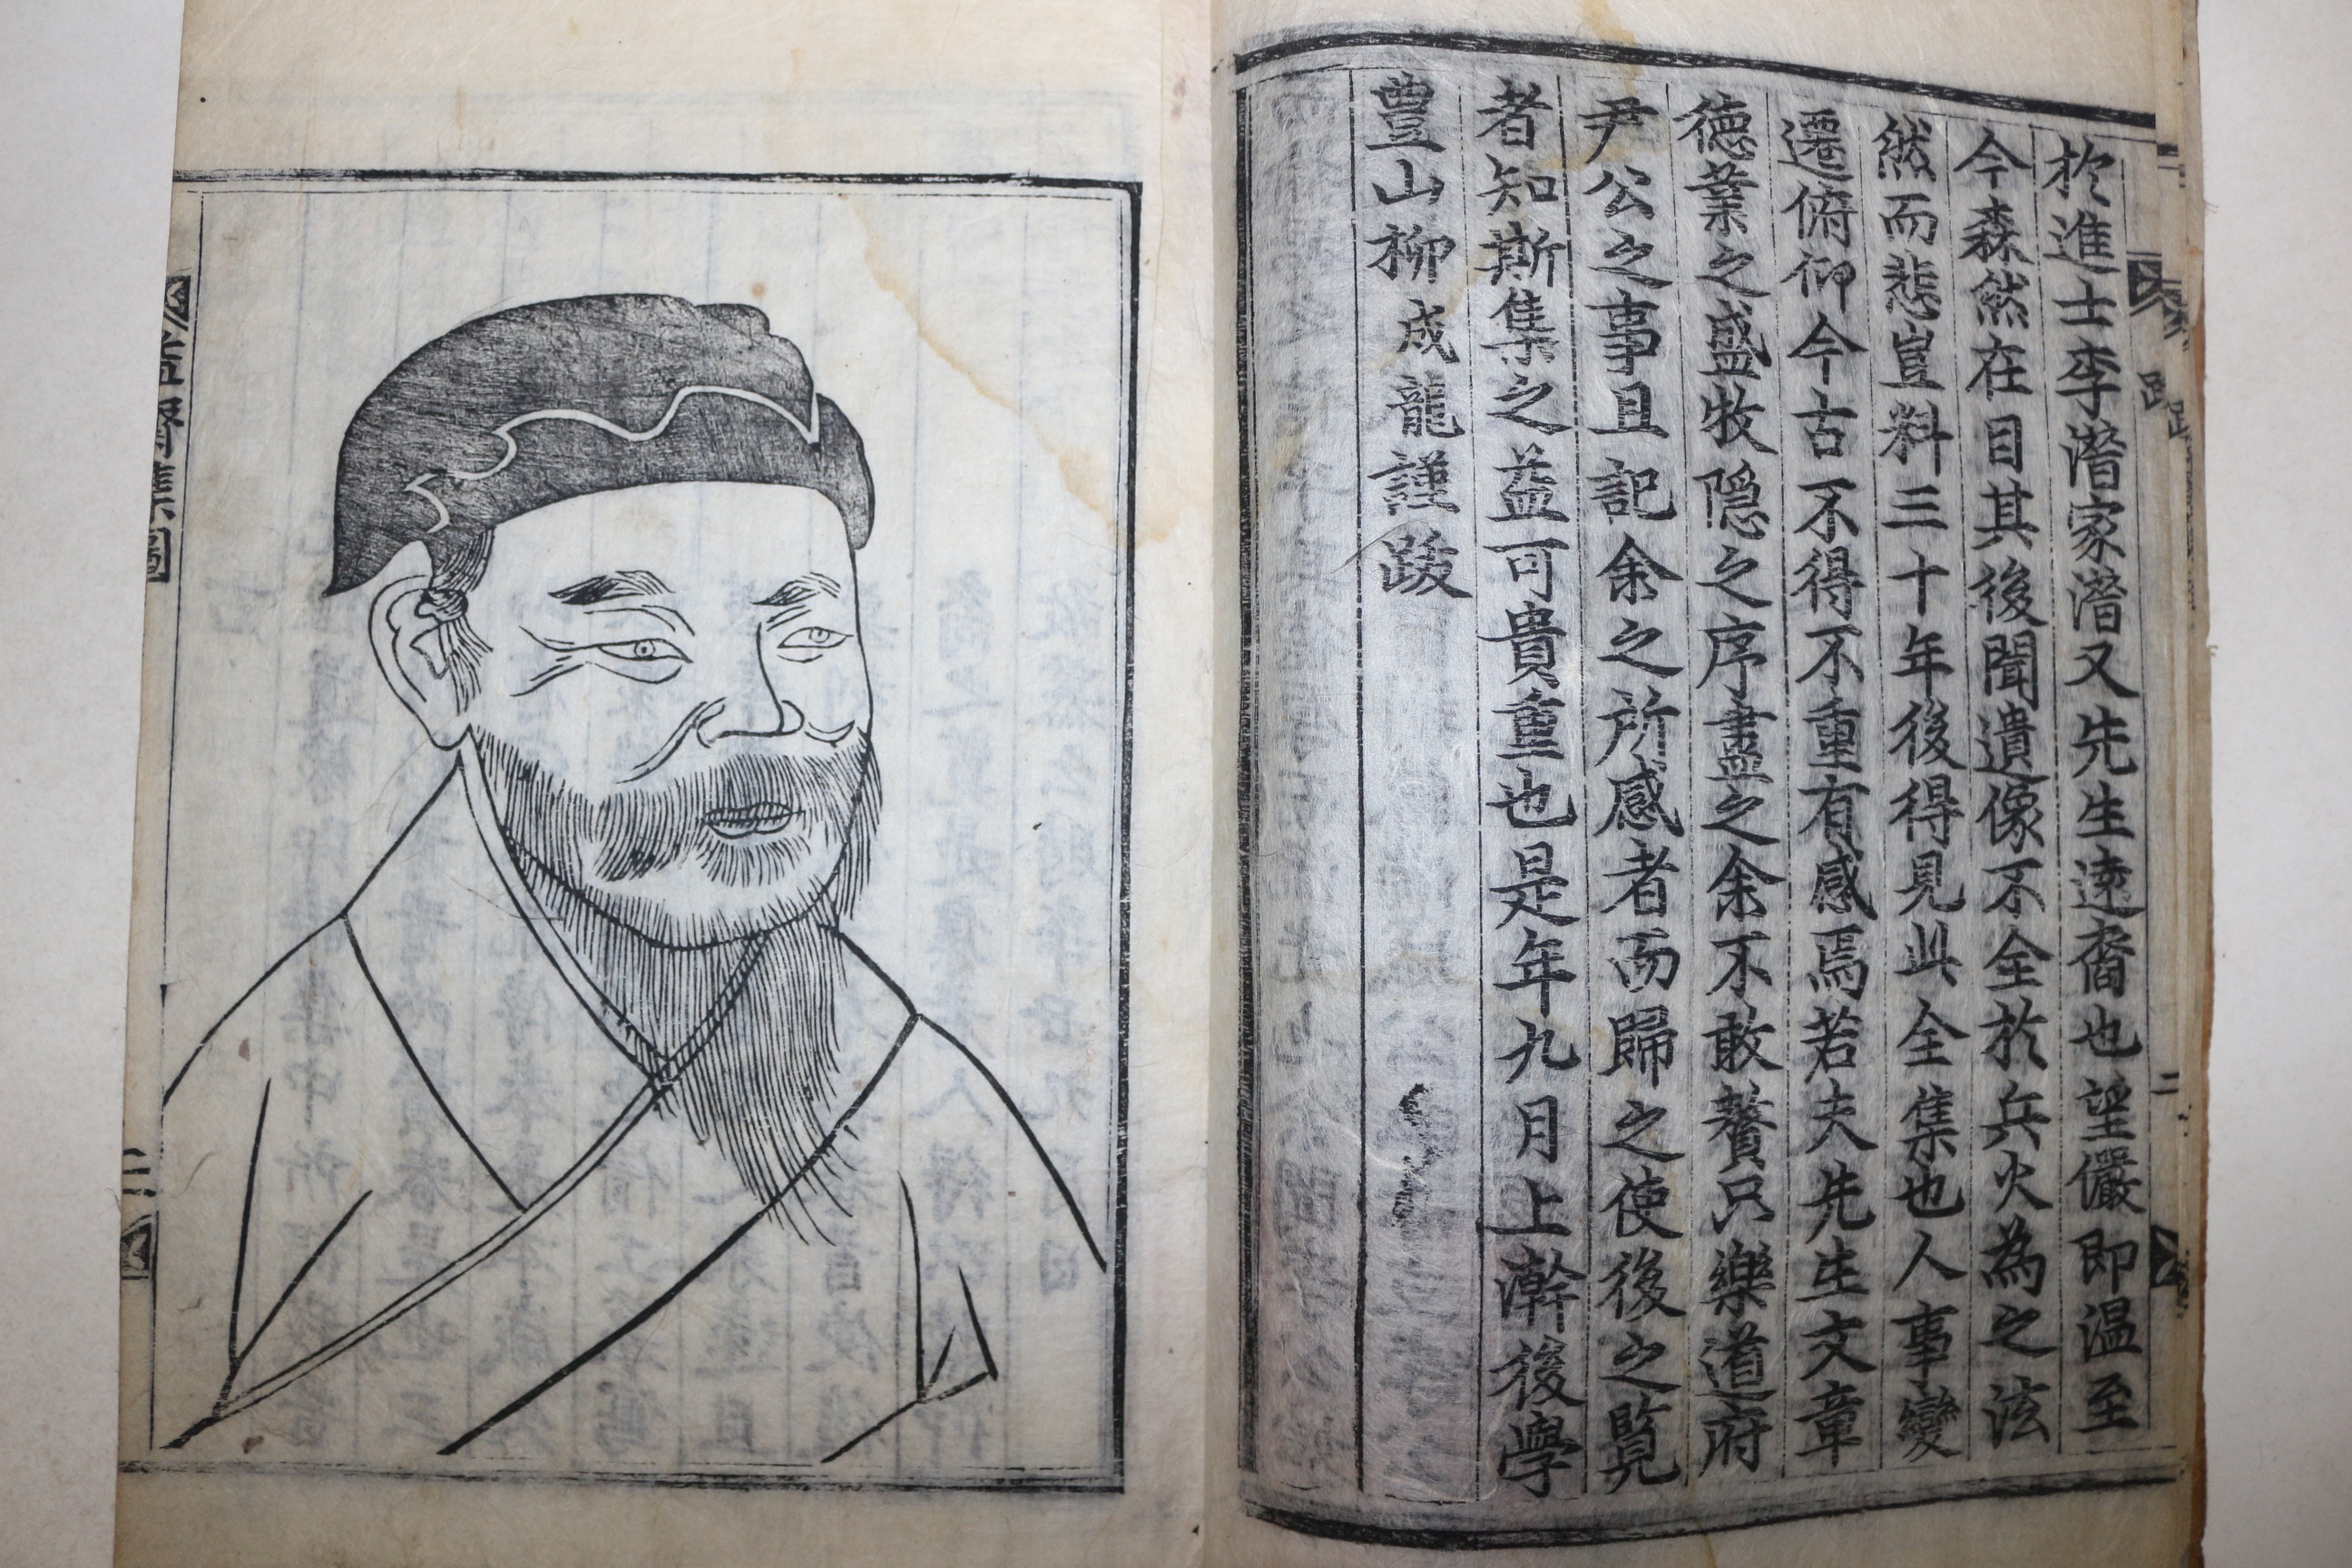 於進士李濳家濳又先生逺裔也望儼即温至
今森然在目其後聞遺像不全於兵火為之泫
然而悲豈料三十年後得見此全集也人事變
遷俯仰今古不得不重有感焉若夫先生文章
德業之盛牧隠之序盡之余不敢贅只樂道府
尹公之事且記余之所感者而歸之使後之覧
者知斯集之益可貴重也是年九月上澣後學
豊山柳成龍謹跋
跋
二
集圖
二